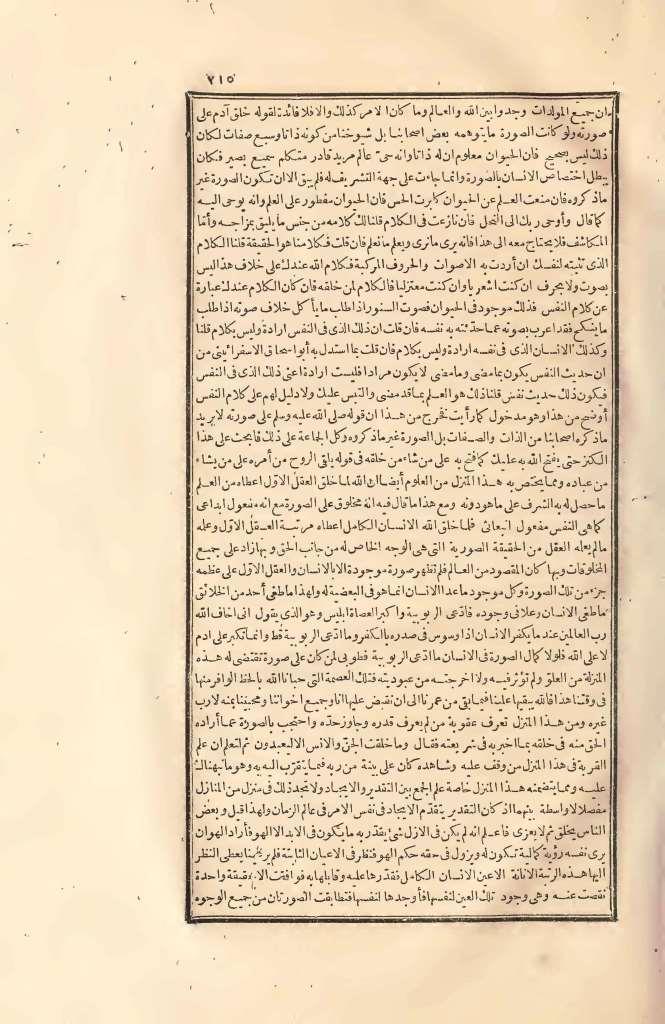 ٧١٥
ان جميع المولدات وجدوا بين الله والعالم وما كان الامر كذلك والا فلا فائدة لقوله خلق آدم على
صورته ولو كانت الصورة ما يتوهمه بعض اصحابنا بل شيوخنا من كونه ذاتا وسبع صفات لكان
ذلك ليس بصحيح فان الحيوان معلوم ان له ذاتا وانه حى عالم مريد قادر متكلم سميع بصير فكان
يبطل اختصاص الانسان بالصورة وانما جاءت على جهة التشريف له فلم يبق الا ان تكون الصورة غير
ما ذكروه فان منعت العلم عن الحيوان كابرت الحس فان الحيوان مفطور على العلم وانه يوحى اليه
كما قال وأوحى ربك الى النحل فان نازعت فى الكلام قلنا لك كلامه من جنس ما يليق بمزاجه وأما
المكاشف فلا يحتاج معه الى هذا فانه يرى ما نرى ويعلم ما نعلم فان قلت فكلامنا هو الحقيقة قلنا الكلام
الذى تثبته لنفسك ان أردت به الاصوات والحروف المركبة فكلام الله عندك على خلاف هذا ليس
بصوت ولا بحرف ان كنت اشعريا وان كنت معتزليا فالكلام لمن خلقه فان كان الكلام عندك عبارة
عن كلام النفس فذلك موجود فى الحيوان فصوت السنور اذا طلب ما يأكل خلاف صوته اذا طلب
ما ينكح فقد اعرب بصوته عما حدثته به نفسه فان قلت ان ذلك الذى فى النفس ارادة وليس بكلام قلنا
وكذلك الانسان الذى فى نفسه ارادة وليس بكلام فان قلت بما استدل به أبو اسحاق الاسفرائنى من
ان حديث النفس يكون بما مضى وما مضى لا يكون مرادا فليست ارادة اعنى ذلك الذى فى النفس
فيكون ذلك حديث نفس قلنا ذلك هو العلم بما قد مضى والتبس عليك ولا دليل لهم على كلام النفس
أوضح من هذا وهو مدخول كما رأيت فخرج من هذا ان قوله صلى الله عليه وسلم على صورته لا يريد
ما ذكره اصحابنا من الذات والصفات بل الصورة غير ما ذكروه وكل الجماعة على ذلك فابحث على هذا
الكنز حتى يفتح الله به عليك كما فتح به على من شاء من خلقه فى قوله يلقى الروح من أمره على من يشاء
من عباده ومما يختص به هذا المنزل من العلوم أيضا ان الله لما خلق العقل الاول اعطاه من العلم
ما حصل له به الشرف على ما هو دونه ومع هذا ما قال فيه انه مخلوق على الصورة مع انه مفعول ابداعى
كما هى النفس مفعول انبعاثى فلما خلق الله الانسان الكامل اعطاه مرتبة العقل الاول وعلمه
ما لم يعلمه العقل من الحقيقة الصورية التى هى الوجه الخاص له من جانب الحق وبها زاد على جميع
المخلوقات وبها كان المقصود من العالم فلم تظهر صورة موجودة الا بالانسان والعقل الاول على عظمه
جزء من تلك الصورة وكل موجود ما عدا الانسان انما هو فى البعضية له ولهذا ما طغى أحد من الخلائق
ما طغى الانسان وعلا فى وجوده فادعى الربوبية واكبر العصاة ابليس وهو الذى يقول انى اخاف الله
رب العالمين عند ما يكفر الانسان اذا وسوس فى صدره بالكفر وما ادعى الربوبية قط وانما تكبر على ادم
لا على الله فلولا كمال الصورة فى الانسان ما ادعى الربوبية فطوبى لمن كان على صورة تقتضى له هذه
المنزلة من العلو ولم تؤثر فيه ولا اخرجته من عبوديته فتلك العصمة التى حبانا الله بالحظ الوافر منها
فى وقتنا هذا فالله يبقيها علينا فيما بقى من عمرنا الى ان نقبض عليها انا وجميع اخواننا ومحبينا بمنه لا رب
غيره ومن هذا المنزل تعرف عقوبة من لم يعرف قدره وجاوز حده واحتجب بالصورة عما أراده
الحق منه فى خلقه بما اخبر به فى شريعته فقال وما خلقت الجن والانس الا ليعبدون ثم لتعلم ان علم
القربة فى هذا المنزل من وقف عليه وشاهده كان على بينة من ربه فيما يتقرب اليه به وهو ما نبهناك
عليه ومما يتضمنه هذا المنزل خاصة علم الجمع بين التقدير والايجاد ولا تجد ذلك فى منزل من المنازل
مفصلا لا واسطة بينهما اذ كان التقدير يتقدم الايجاد فى نفس الامر فى عالم الزمان ولهذا قيل وبعض
الناس يخلق ثم لا يفرى فاعلم انه لم يكن فى الازل شئ يقدر به ما يكون فى الابد الا الهو فأراد الهو ان
يرى نفسه رؤية كمالية تكون له ويزول فى حقه حكم الهو فنظر فى الاعيان الثابتة فلم ير عينا يعطى النظر
اليها هذه الرتبة الانانية الا عين الانسان الكامل فقدرها عليه وقابلها به فوافقت الا حقيقة واحدة
نقصت عنه وهى وجود تلك العين لنفسها فأوجدها لنفسها فتطابقت الصورتان من جميع الوجوه